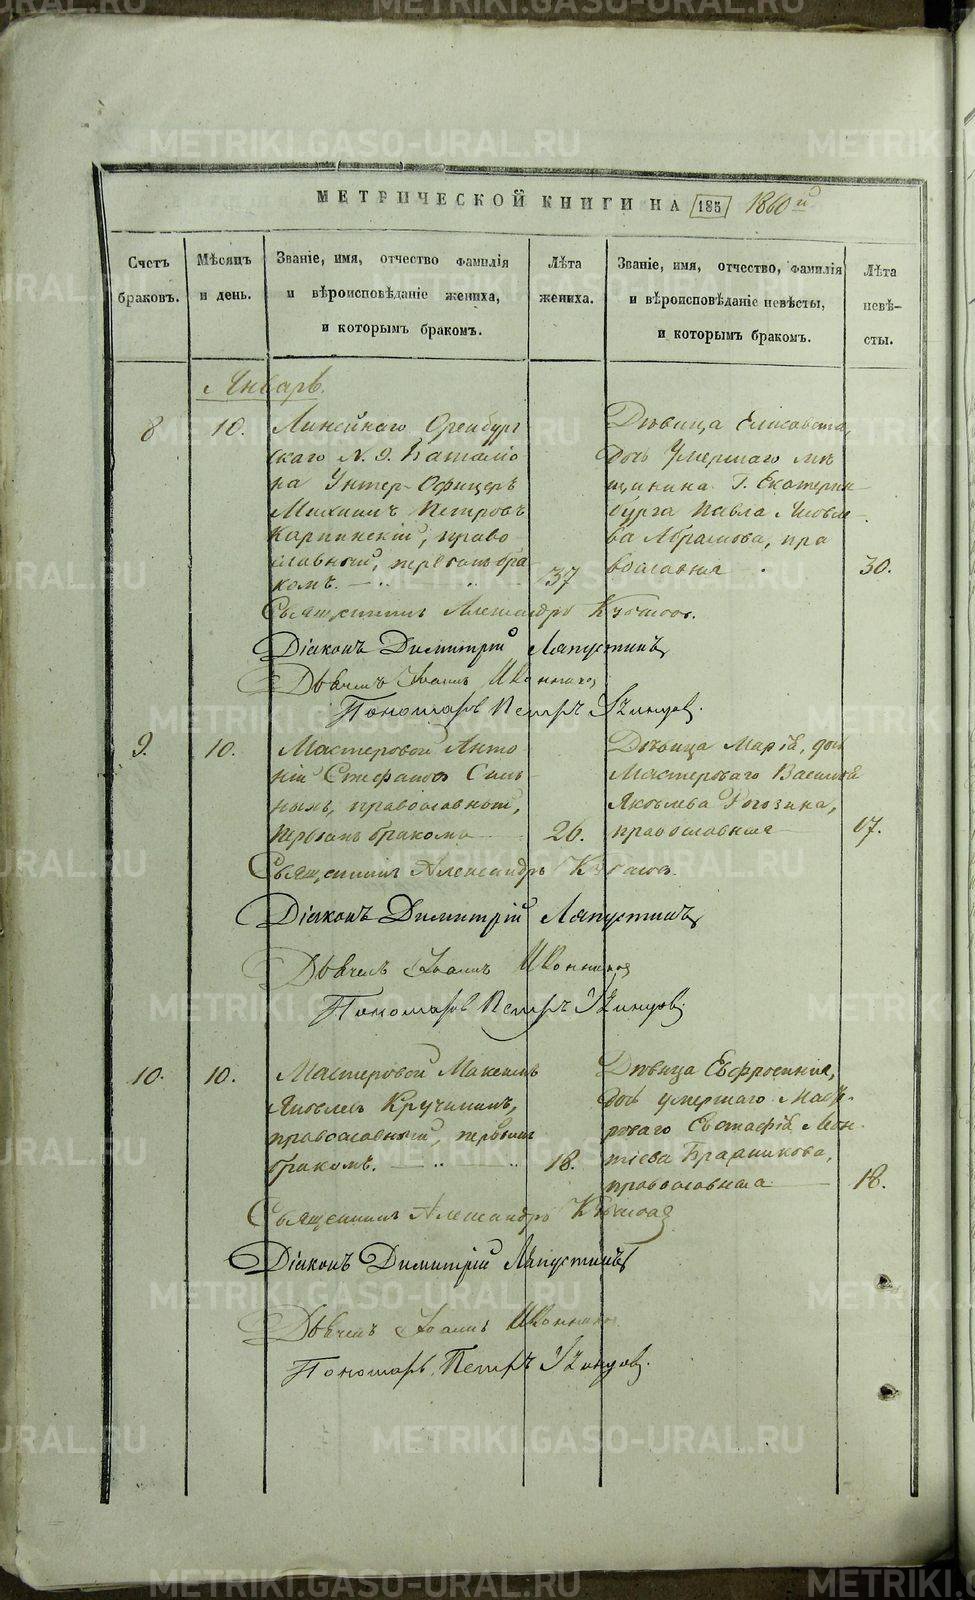 МЕТРИЧЕСКОЙ КНИГИ НА 185 1860й
Счетъ браковъ.
Мѣсяцъ и день.
Званіе, имя, отчество фамилія и вѣроисповѣданіе жениха, и которымъ бракомъ.
Лѣта жениха.
Званіе, имя, отчество, фамилія и вѣроисповѣданіе невѣсты, и которымъ бракомъ.
Лѣта невѣ-сты.
Январь.
8 10.
Линейнаго Оренбург
скаго N. 9. Баталіо
на Унтер-Офицеръ
Михаилъ Петровъ
Карпинскій, право
славный, первымъ бра
комъ. 37
Дѣвица Елисавета,
дочь умершаго мѣ
щанина Г. Екатерин
бурга Павла Яковле
ва Абрамова, пра
вославная 30.
Священникъ Александръ
Діаконъ Димитрій Ляпустинъ
Дьячекъ Іоаннъ Иконниковъ
Пономарь Петръ
9. 10.
Мастеровой Анто
ній Стефановъ
православный,
первымъ бракомъ 26.
Дѣвица Марія, дочь
Мастероваго Василія
Яковлева Рогозина,
православная 17.
Священникъ Александръ
Діаконъ Димитрій Ляпустинъ
Дьячекъ Іоаннъ Иконниковъ
Пономарь Петръ
10. 10.
Мастеровой Максимъ
Яковлевъ Кручининъ,
православный, первымъ
бракомъ. 18.
Дѣвица Евфросинія,
дочь умершаго Масте
роваго Евстафія Леон
тіева Бражникова,
православная 18.
Священникъ Александръ
Діаконъ Димитрій Ляпустинъ
Дьячекъ Іоаннъ Иконниковъ
Пономарь Петръ
METRIKI.GASO-URAL.RU